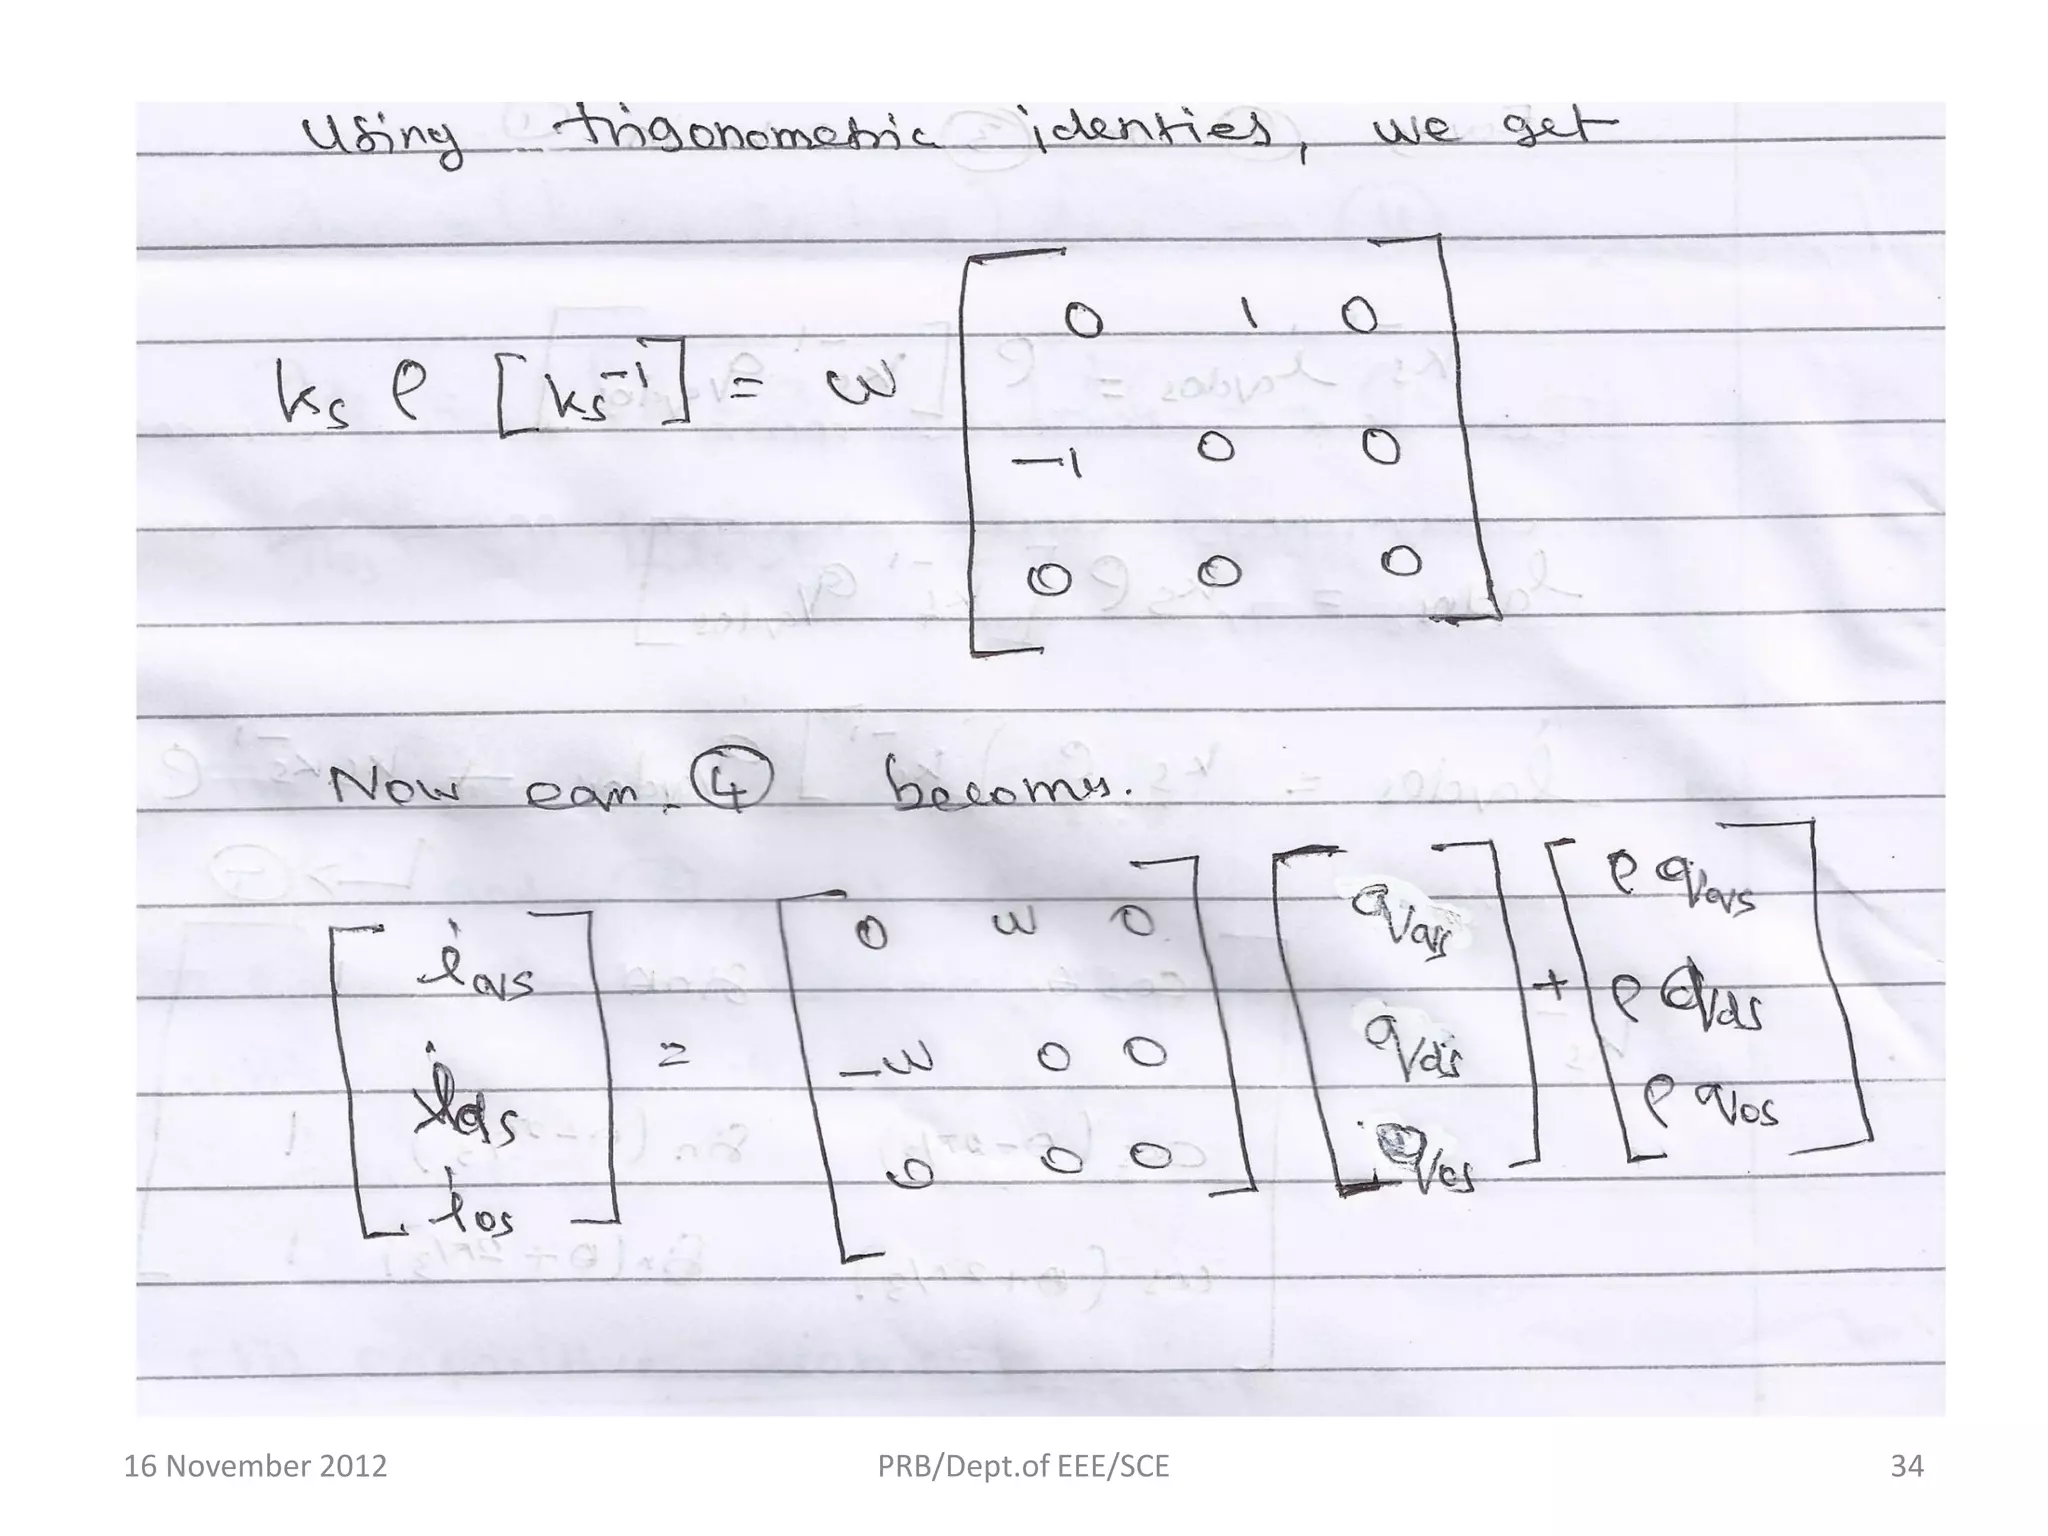 Using trigonometric identies, we get
ks ρ [ks⁻¹] = ω [ 0 1 0
-1 0 0
0 0 0 ]
Now eqn. ④ becomes.
[ iqs
ids
ios ] = [ 0 ω 0
-ω 0 0
0 0 0 ] [ qqs
qds
qos ] + [ ρ qqs
ρ qds
ρ qos ]
16 November 2012 PRB/Dept.of EEE/SCE 34